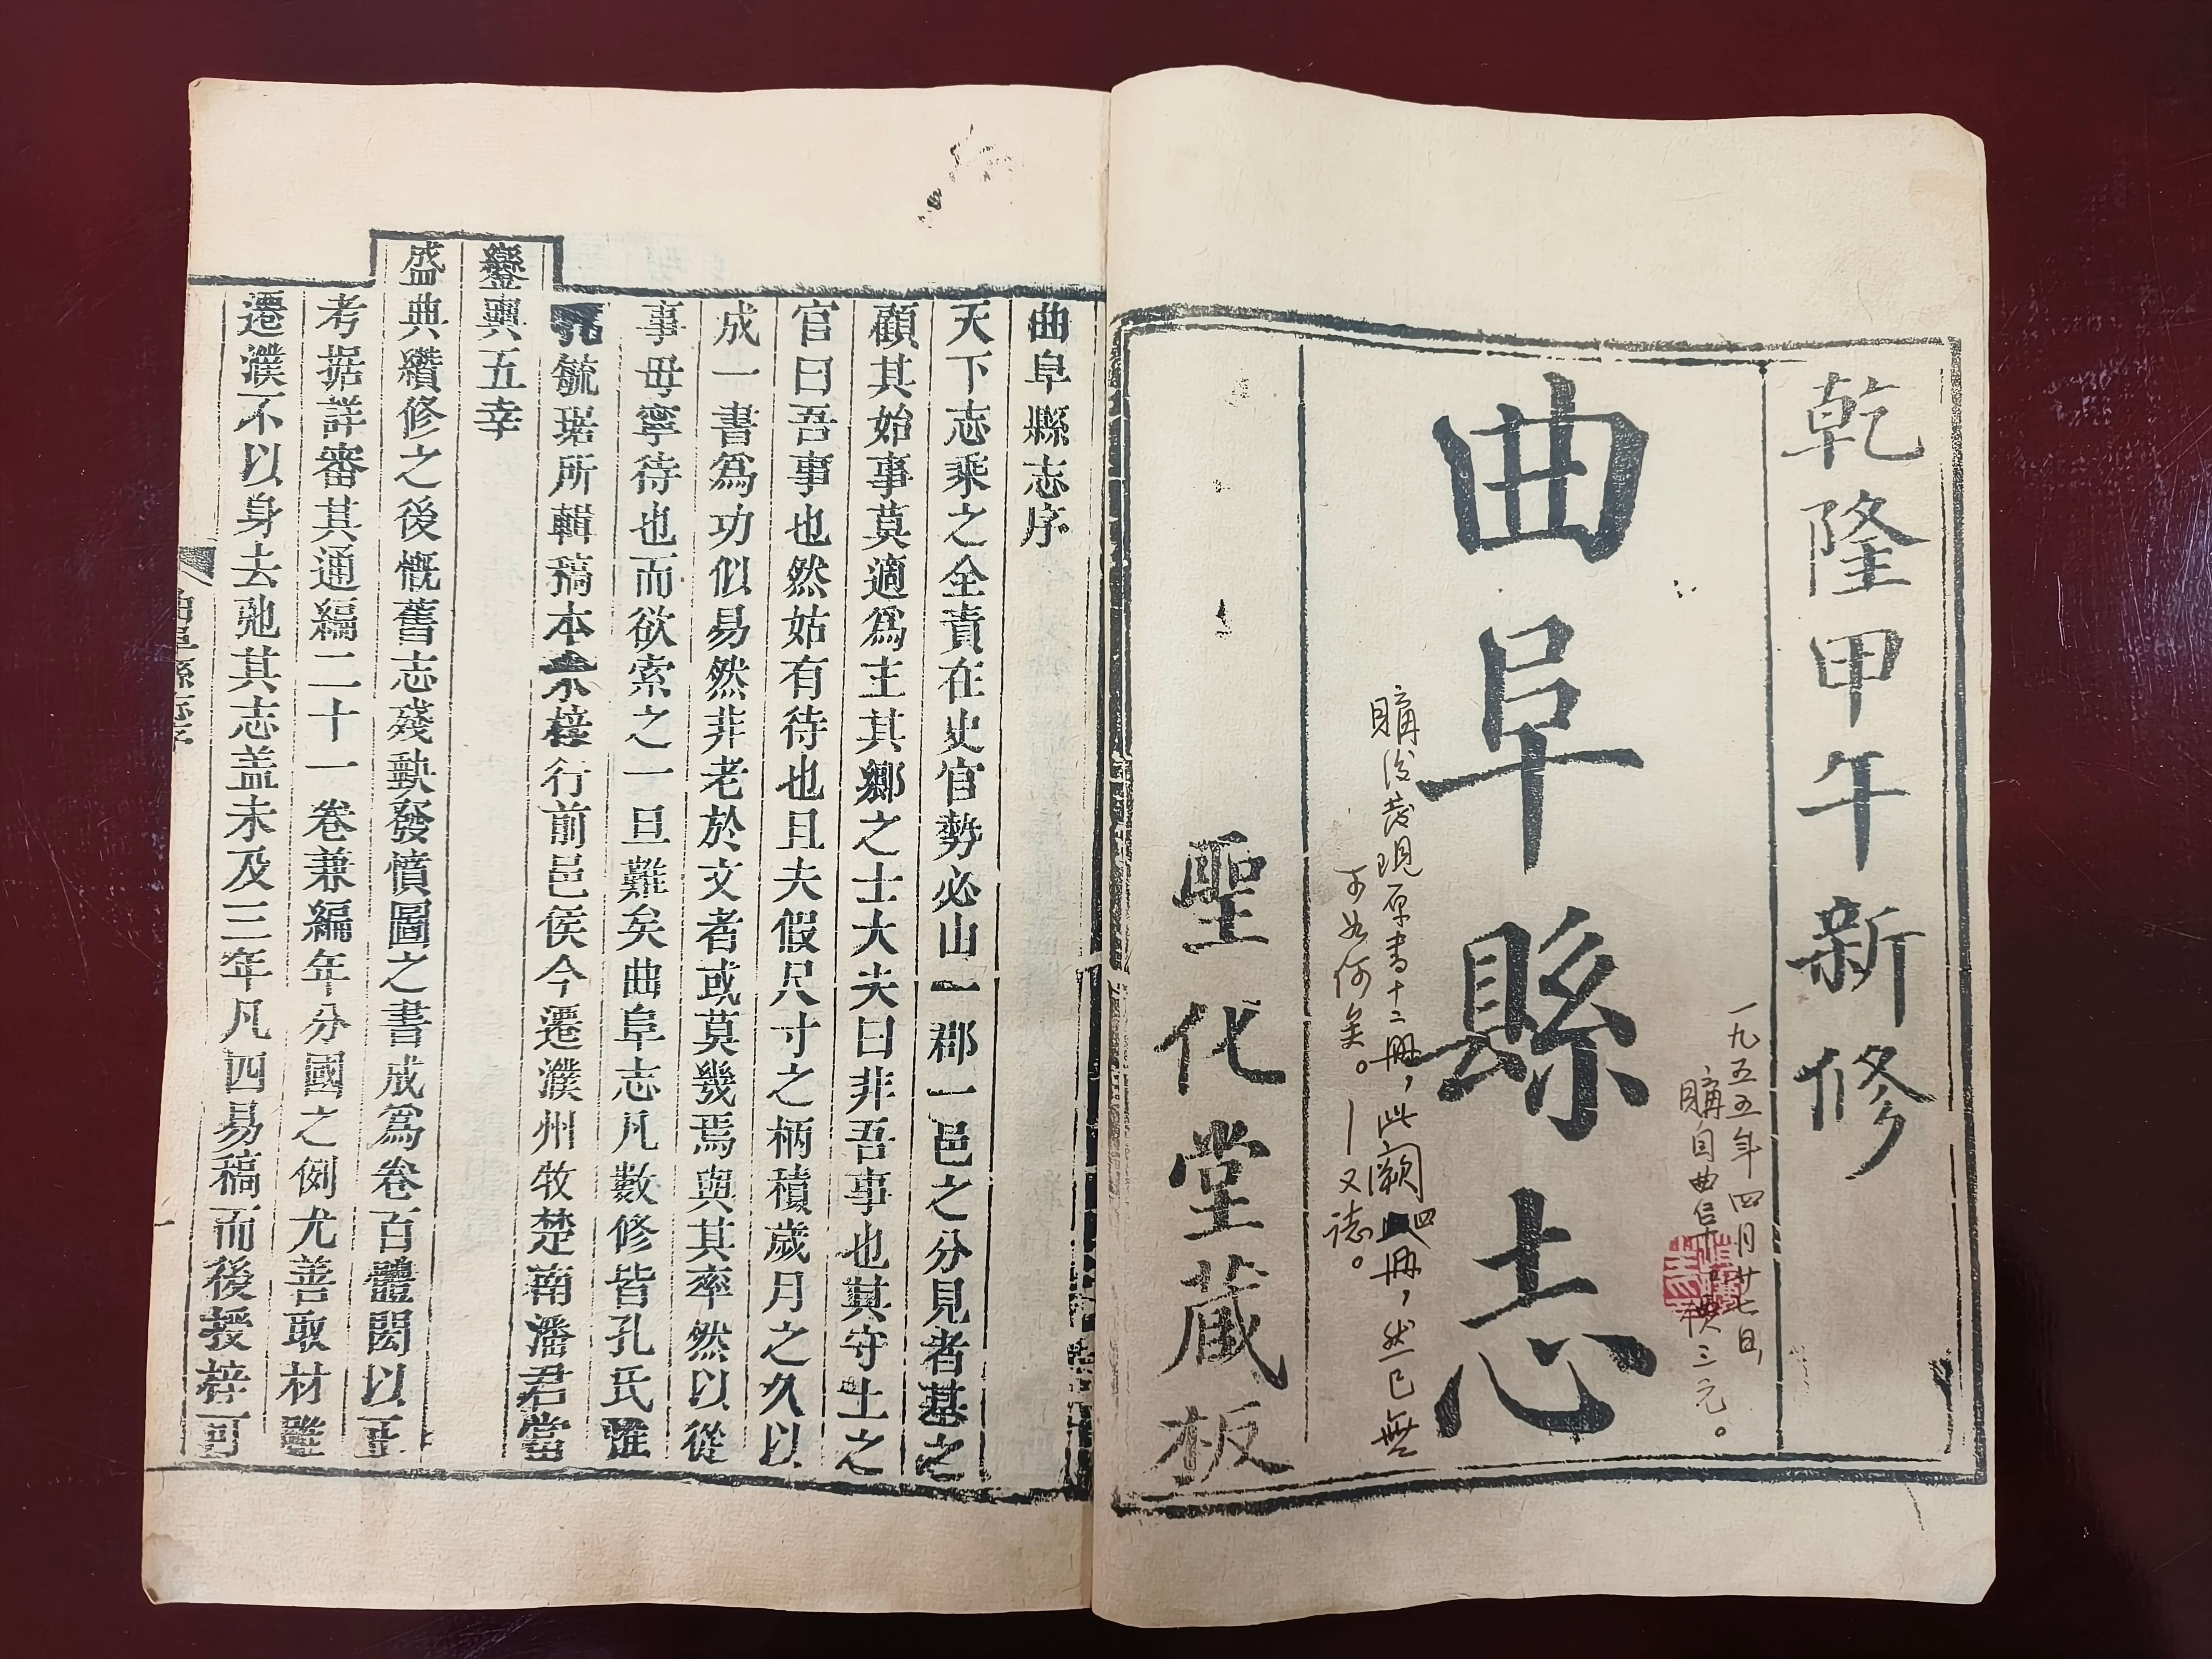 乾隆甲午新修
一九五五年四月廿七日,
購自曲阜,價三元。
曲阜縣志
購後發現原書十二冊,此闕四冊,然已無
可如何矣。—又誌。
聖化堂蔵板
曲阜縣志序
天下志乘之全責在史官勢必山一郡一邑之分見者基之
顧其始事莫適爲主其鄉之士大夫曰非吾事也其守土之
官曰吾事也然姑有待也且夫假尺寸之柄積歲月之久以
成一書爲功似易然非老於文者或莫幾焉與其率然以從
事毋寧待也而欲索之一旦難矣曲阜志凡數修皆孔氏雖
孔毓琚所輯稿本未梓行前邑侯今遷濮州牧楚南潘君當
鑾輿五幸
盛典纘修之後慨舊志殘缺發憤圖之書成爲卷百體閎以正
考据詳審其通編二十一卷兼編年分國之例尤善取材雖
遷濮不以身去弛其志盖未及三年凡四易稿而後授梓可
曲阜縣志序
一